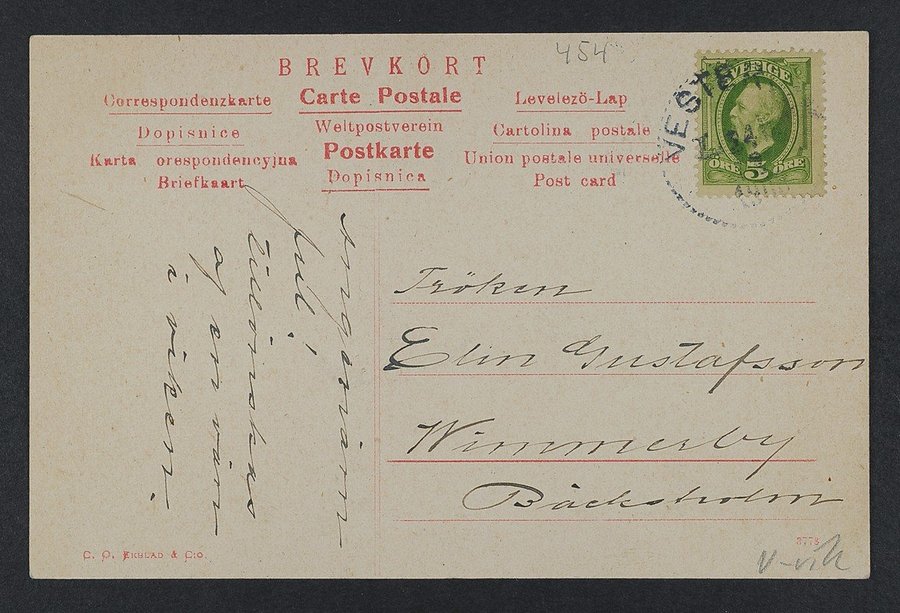 454
BREVKORT
Correspondenzkarte
Carte Postale
Levelezö-Lap
Dopisnice
Weltpostverein
Cartolina postale
Karta orespondencyjna
Postkarte
Union postale universelle
Briefkaart
Dopisnica
Post card
SVERIGE
ÖRE 5 ÖRE
VESTER
Angenäm
jul!
tillönskas
af en vän
i viken.
Fröken
Elin Gustafsson
Wimmerby
Bäcksholm
C. O. EKBLAD & C:O.